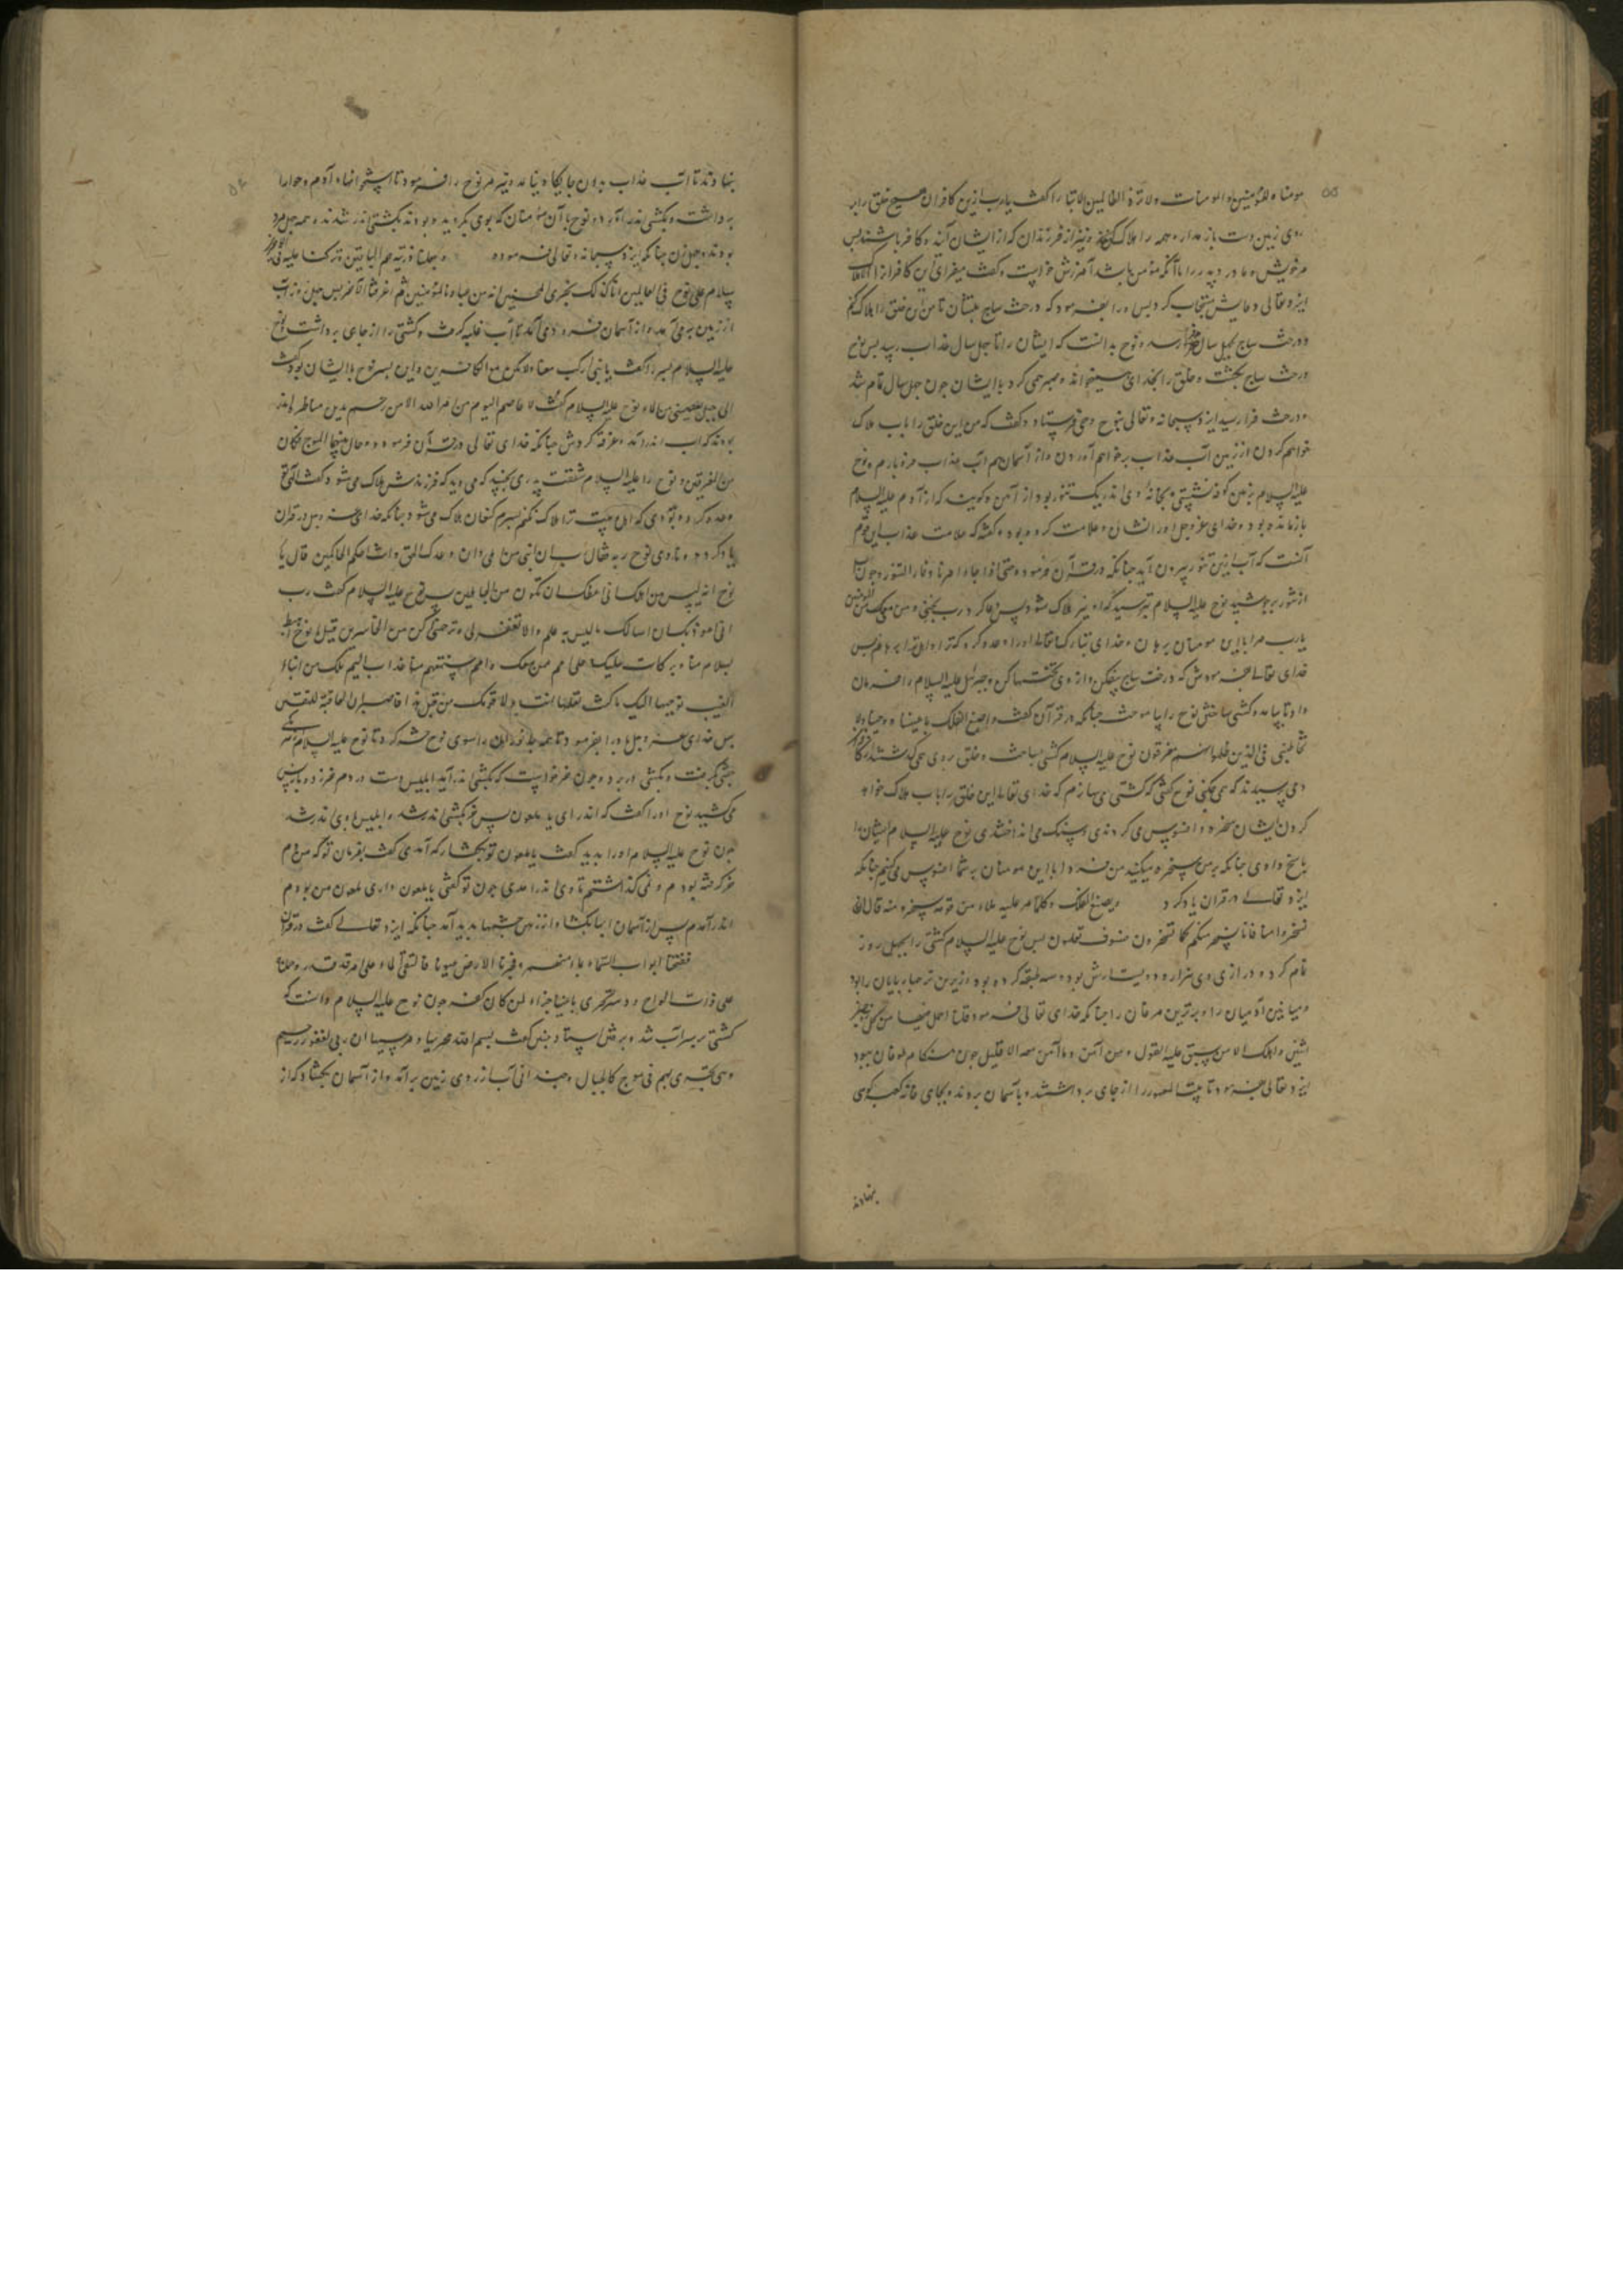 مومنا و للمؤمنین و المومنات ولا تزد الظالمین الا تبارا گفت یارب ازین کافران هیچ خلق را بر
روی زمین دست باز مدار و همه را هلاک کن و نیز از فرزندان که از ایشان آیند و کافر باشند پس
مر خویش و مادر و پدر را با آنکه مؤمن باشد آمرزش خواست و گفت
ایزد تعالی دعایش مستجاب کرد پس او را بفرمود که درخت ساج بنشان تا من این خلق را هلاک کنم
و درخت ساج بچهل سال رسد و نوح بدانست که ایشان را تا چهل سال عذاب رسد پس نوح
درخت ساج بکشت و خلق را بخدای میخواند و صبر همی کرد با ایشان چون چهل سال تمام شد
و درخت فرا رسید ایزد سبحانه و تعالی بنوح وحی فرستاد و گفت که من این خلق را باب هلاک
خواهم کردن از زمین آب عذاب برخواهم آوردن و از آسمان هم آب عذاب فرو بارم و نوح
علیه السلام بزمین کوفه نشستی و بخانه وی اندر یک تنور بود از آهن و گویند که از آدم علیه السلام
بازمانده بود و خدای عزوجل او را نشان و علامت کرده بود و گفته که علامت عذاب این قوم
آنست که آب ازین تنور بیرون آید چنانکه در قرآن فرمود و حتی اذا جاء امرنا و فار التنور و چون آب
از تنور برجوشید نوح علیه السلام بترسید که او نیز هلاک شود پس دعا کرد رب نجنی و من معی من المؤمنین
یارب مرا با این مومنان برهان و خدای تبارک و تعالی او را وعده کرد که ترا و اهل ترا برهانم پس
خدای تعالی بفرمودش که درخت ساج بیفکن و از وی تختها کن و جبرئیل علیه السلام را فرمان
داد تا بیامد و کشتی ساختن نوح را بیاموخت چنانکه در قرآن گفت و اصنع الفلک باعیننا و وحینا ولا
تخاطبنی فی الذین ظلموا انهم مغرقون نوح علیه السلام کشتی میساخت و خلق بروی همی گذشتندی
و می پرسیدند که چه میکنی نوح گفتی که کشتی می سازم که خدای تعالی این خلق را باب هلاک خواهد
کردن ایشان سخره و افسوس می کردندی و سنگ می انداختندی نوح علیه السلام ایشان را
پاسخ دادی چنانکه بر من سخره میکنید من فردا با این مومنان بر شما افسوس می کنیم چنانکه
ایزد تعالی در قران یاد کرد و یصنع الفلک و کلما مر علیه ملاء من قومه سخروا منه قال ان
تسخروا منا فانا نسخر منکم کما تسخرون فسوف تعلمون پس نوح علیه السلام کشتی را بچهل روز
تمام کرد و درازی وی هزار و دویست ارش بود و سه طبقه کرده بود و زیرین تر چهارپایان را بود
و میانین آدمیان را و برترین مرغان را چنانکه خدای تعالی فرمود قلنا احمل فیها من کل زوجین
اثنین و اهلک الا من سبق علیه القول و من آمن و ما آمن معه الا قلیل چون هنگام طوفان ببود
ایزد تعالی بفرمود تا بیت المعمور را از جای برداشتند و بآسمان بردند و بجای خانه کعبه کوهی
بنهادند
بنهادند تا آب عذاب بدان جایگاه نیاید و نیز مر نوح را فرمود تا استخوانهاء آدم و حوا را
برداشت و بکشتی اندر آورد و نوح با آن مؤمنان که بوی گرویده بودند بکشتی اندر شدند و همه چهل مرد
بودند و چهل زن چنانکه ایزد سبحانه و تعالی فرموده و جعلنا ذریته هم الباقین و ترکنا علیه فی الآخرین
سلام علی نوح فی العالمین انا کذلک نجزی المحسنین انه من عبادنا المؤمنین ثم اغرقنا الاخرین پس چهل روز آب
از زمین برمی آمد و از آسمان فرود می آمد تا آب غلبه گرفت و کشتی را از جای برداشت نوح
علیه السلام پسر را گفت یا بنی ارکب معنا ولا تکن مع الکافرین و این پسر نوح با ایشان بود گفت
الی جبل یعصمنی من الماء نوح علیه السلام گفت لا عاصم الیوم من امر الله الا من رحم بدین مناظره اندر
بودند که آب اندر آمد و غرقه کردش چنانکه خدای تعالی در قرآن فرمود و حال بینهما الموج فکان
من المغرقین و نوح را علیه السلام شفقت پدری بجنبید که می دید که فرزندش هلاک می شود گفت الهی تو
وعده کرده بودی که اهل بیت ترا هلاک نکنم پسرم کنعان هلاک می شود چنانکه خدای عزوجل در قران
یاد کرد و نادی نوح ربه فقال رب ان ابنی من اهلی و ان وعدک الحق و انت احکم الحاکمین قال یا
نوح انه لیس من اهلک انی اعظک ان تکون من الجاهلین پس نوح علیه السلام گفت رب
انی اعوذ بک ان اسالک ما لیس به علم و الا تغفر لی و ترحمنی اکن من الخاسرین قیل یا نوح اهبط
بسلام منا و برکات علیک و علی امم ممن معک و امم سنمتعهم منا عذاب الیم تلک من انباء
الغیب نوحیها الیک ما کنت تعلمها انت ولا قومک من قبل هذا فاصبر ان العاقبة للمتقین
پس خدای عزوجل او را بفرمود تا همه جانوران را سوی نوح حشر کرد تا نوح علیه السلام از هر یکی
جفتی گرفت و بکشتی در برد و چون خر خواست که بکشتی اندر آید ابلیس دست در دم خر زد و باز پس
می کشید نوح او را گفت که اندر ای یا ملعون پس خر بکشتی اندر شد و ابلیس با وی اندر شد
چون نوح علیه السلام او را بدید گفت یا ملعون تو بچه کار آمدی گفت بفرمان تو که من دم
خر گرفته بودم و نمی گذاشتم تا وی اندر آمدی چون تو گفتی یا ملعون داری ملعون من بودم
اندر آمدم پس از آسمان ابها بگشاد و از زمین چشمها بدید آمد چنانکه ایزد تعالی گفت در قرآن
ففتحنا ابواب السماء بماء منهمر و فجرنا الارض عیونا فالتقی الماء علی امر قد قدر و حملناه
علی ذات الواح و دسر تجری باعیننا جزاء لمن کان کفر چون نوح علیه السلام دانست که
کشتی بر سر آب شد و برفتن استاد چنین گفت بسم الله مجریها و مرسیها ان ربی لغفور رحیم
و هی تجری بهم فی موج کالجبال و چندانی آب از روی زمین برآمد و از آسمان بگشاد که از